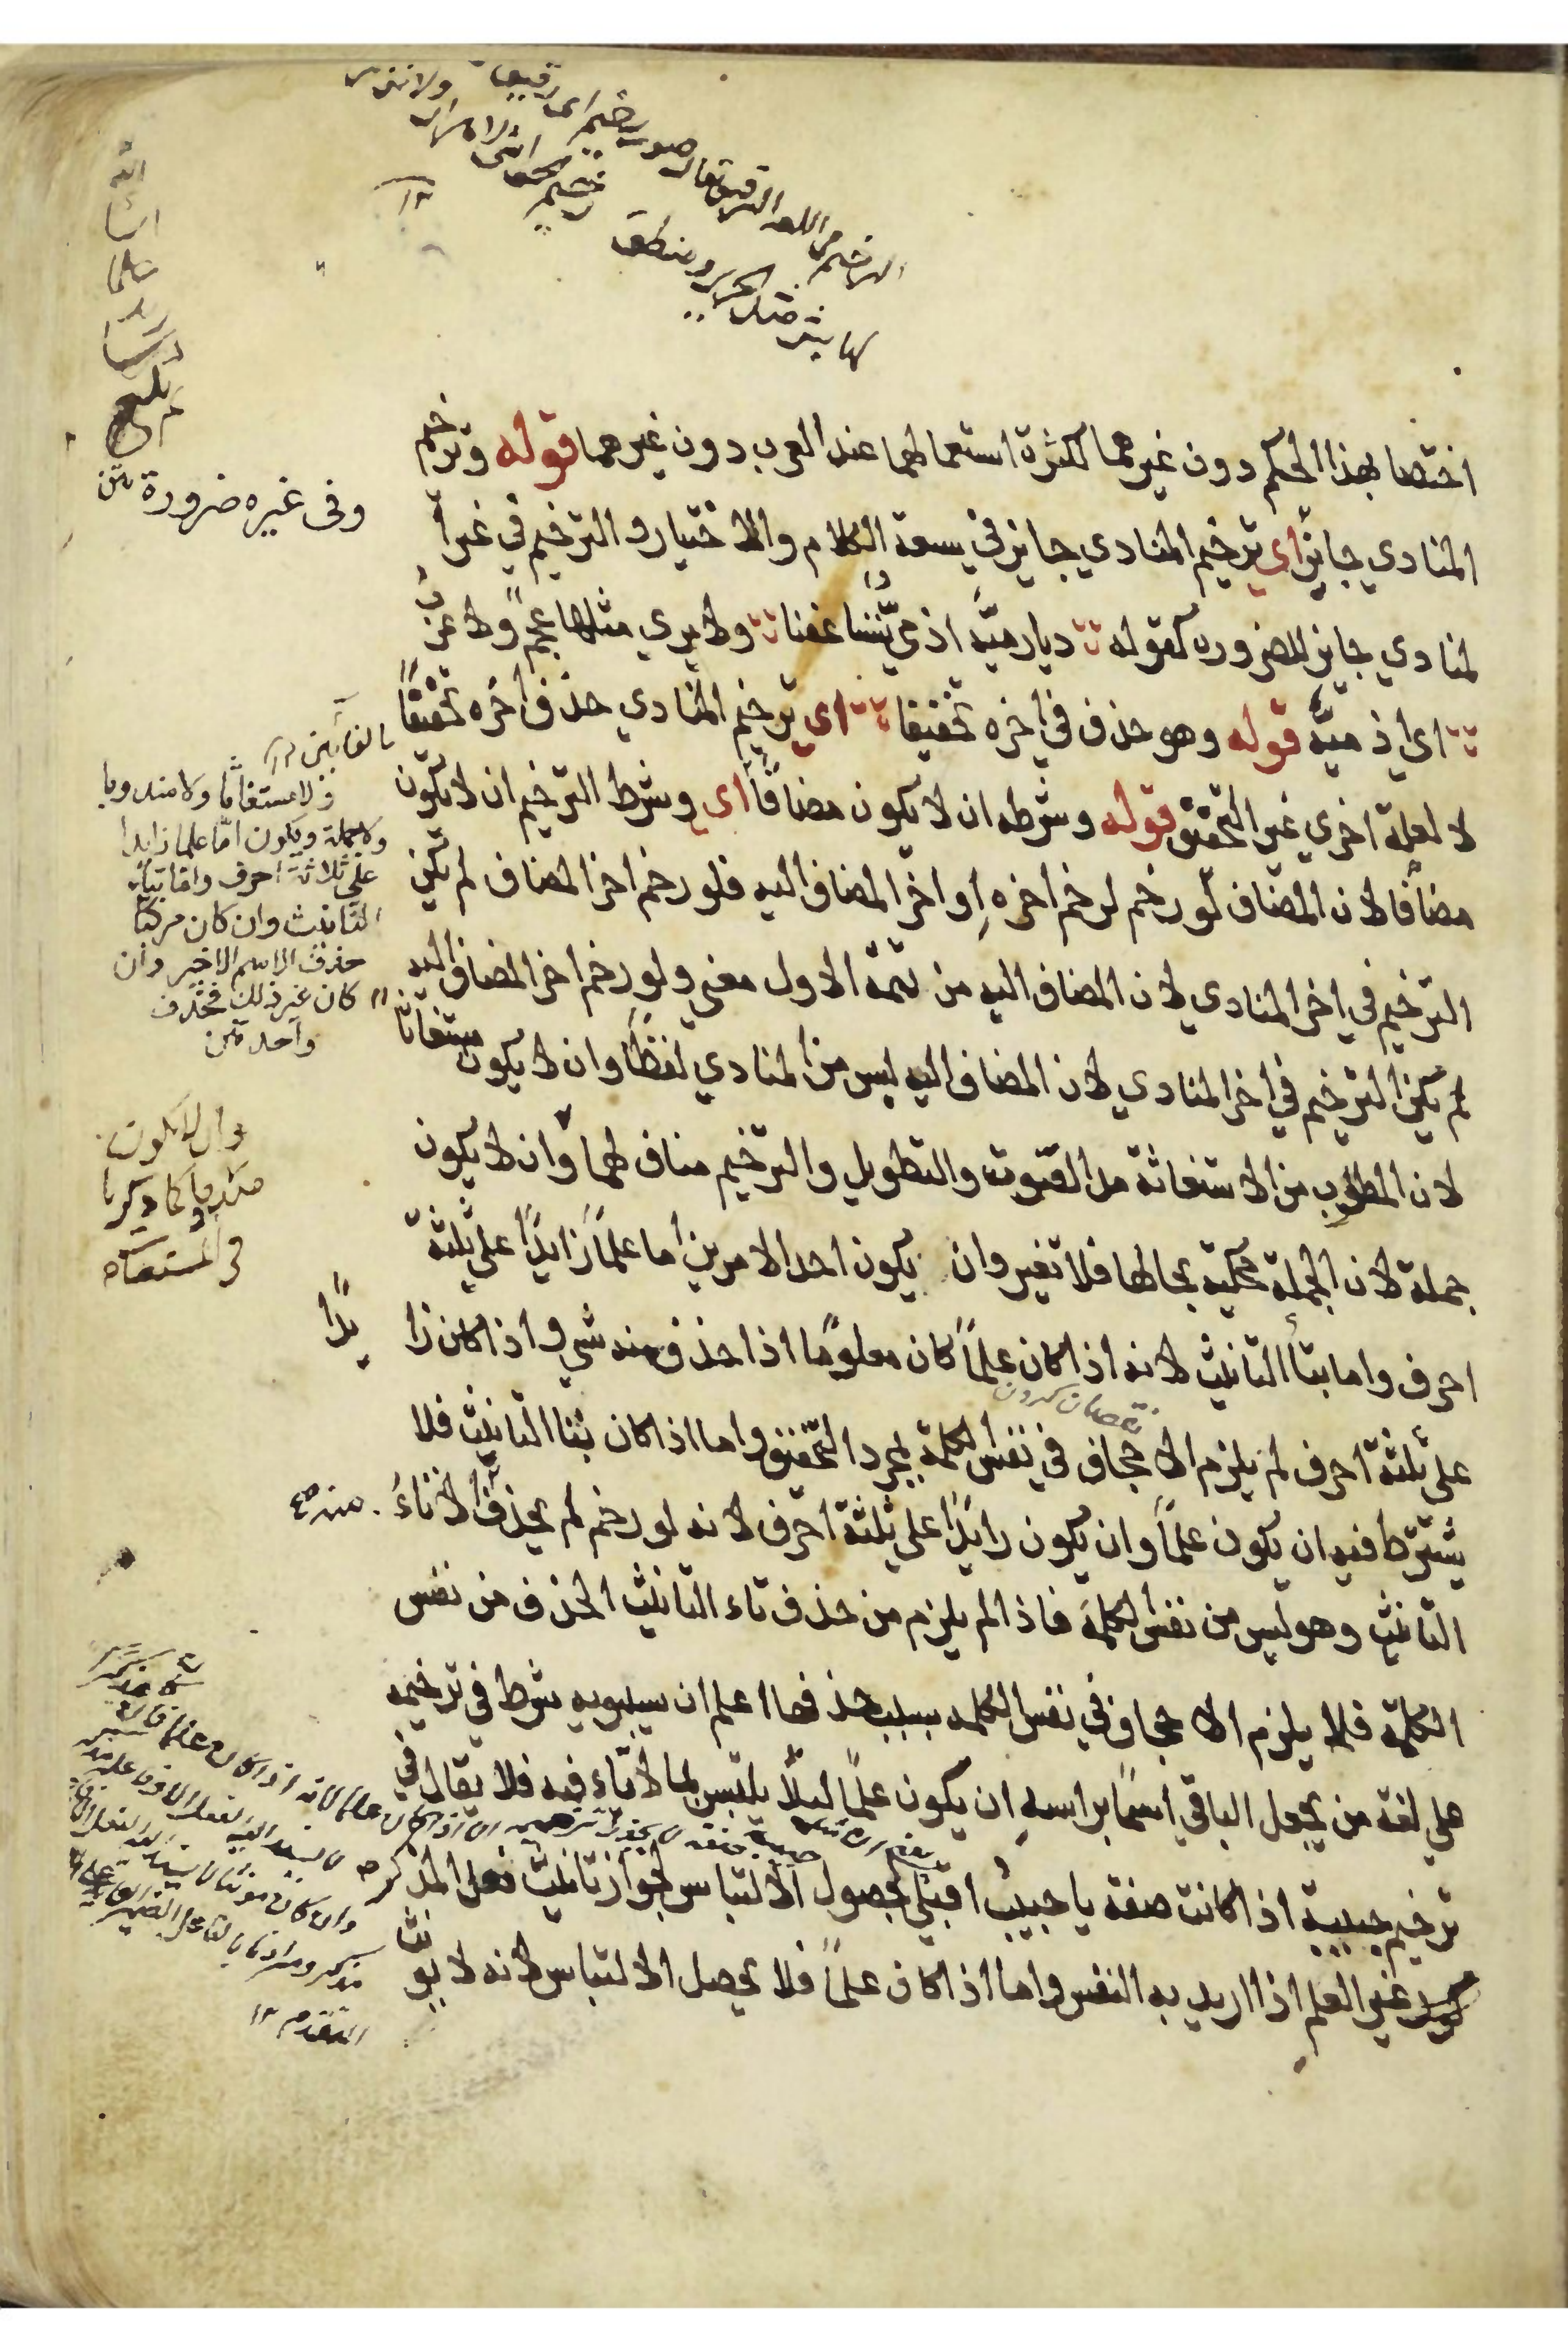 الترخيم في اللغة الترقيق يقال صوت رخيم اى رقيق
لها بشر مثل الحرير ومنطق
رخيم الحواشى لا هراء ولا نزر
١٢
اختصا بهذا الحكم دون غيرهما لكثرة استعمالهما عند العرب دون غيرهما قوله وترخيم
المنادي جايز اي ترخيم المنادي جايز في سعة الكلام والاختيار والترخيم في غير ا
لمنادي جايز للضروره كقوله ديار ميّة اذ مىّ تساعفنا ولا يري مثلها عجم ولا عرب
اي اذ ميّة قوله وهو حذف في اخره تخفيفا اي ترخيم المنادي حذف اخره تخفيفًا
لا لعلة اخري غير التخفيف قوله وشرطه ان لا يكون مضافًا اي وشرط الترخيم ان لا يكون
مضافًا لان المضاف لو رخم لرخم اخره او اخر المضاف اليه فلو رخم اخر المضاف لم يكن
الترخيم في اخر المنادي لان المضاف اليه من تتمة الاول معني ولو رخم اخر المضاف اليه
لم يكن الترخيم في اخر المنادي لان المضاف اليه ليس من المنادي لفظًا وان لا يكون مستغاثا
لان المطلوب من الاستغاثة مد الصوت والتطويل والترخيم مناف لهما وان لا يكون
جملة لان الجملة محكية بحالها فلا تغير وان يكون احد الامرين اما علمًا زايدًا على ثلثة
احرف واما بتاأ التانيث لانه اذا كان علمًا كان معلومًا اذا حذف منه شي واذا كان زا يدًا
على ثلثة احرف لم يلزم الاجحاف في نفس الكلمة لمجرد التخفيف واما اذا كان بتا التانيث فلا
نقصان كردن
يشترط فيه ان يكون علمًا وان يكون زايدًا على ثلثة احرف لانه لو رخم لم يحذف الا تاءُ
التانيث وهو ليس من نفس الكلمة فاذا لم يلزم من حذف تاء التانيث الحذف من نفس
الكلمة فلا يلزم الاجحاف في نفس الكلمه بسبب حذفها اعلم ان سيبويه شرط في ترخيمه
علي لغة من يجعل الباقي اسمًا براسه ان يكون علمًا ليلا يلتبس بما لا تاء فيه فلا يقال في
ترخيم حبيبة اذا كانت صفة يا حبيبُ اقبلي لحصول الالتباس لجواز تانيث فعل المذكر
غير العلم اذا اريد به النفس واما اذا كان علمًا فلا يحصل الالتباس لانه لا يو نث
وفى غيره ضرورة متن
ولا مستغاثا ولا مندوبا
ولا جملة ويكون امّا علما زايدا
على ثلاثة احرف واما بتاء
التانيث وان كان مركبا
حذف الاسم الاخير وان
كان غير ذلك فحذف
واحد متن
وان لا يكون
مندوبا كما ذكرنا
فى المستغاث
المتقدم ١٢